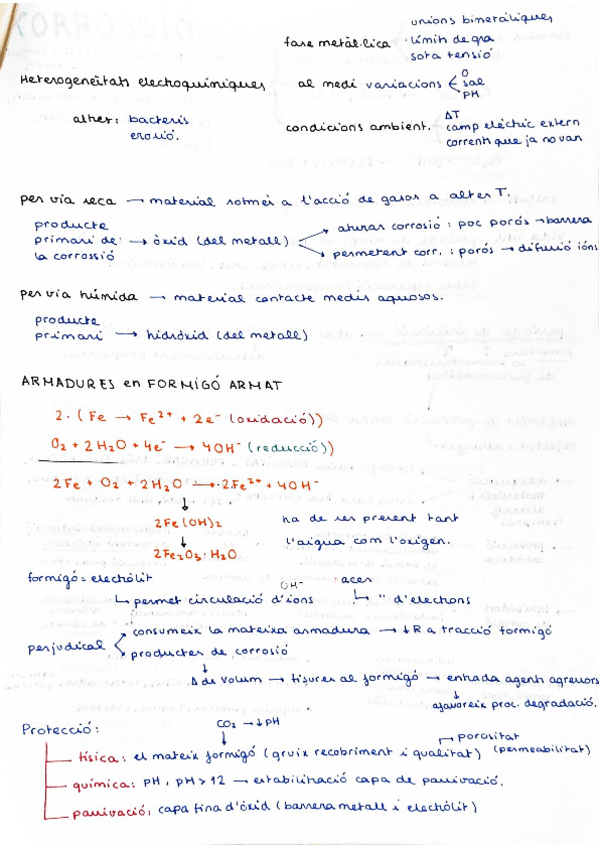 unions bimetàl·liques
fase metàl·lica · límit de gra
sota tensió
Heterogeneïtats electroquímiques al medi variacions O
sal
PH
altres: bacteris
erosió.
condicions ambient. ΔT
camp elèctric extern
corrent que ja no van
per via seca → material sotmès a l'acció de gasos a altes T.
producte
primari de: → òxid (del metall)
la corrossió
aturar corrosió : poc porós → barrera
permetent corr. : porós → difusió ións
per via húmida → material contacte medis aquosos.
producte
primari → hidròxid (del metall)
ARMADURES en FORMIGÓ ARMAT
2 · (Fe → Fe²⁺ + 2e⁻ (oxidació))
O₂ + 2H₂O + 4e⁻ → 4OH⁻ (reducció))
2Fe + O₂ + 2H₂O → 2Fe²⁺ + 4OH⁻
↓
2Fe(OH)₂
↓
2Fe₂O₃·H₂O
ha de ser present tant
l'aigua com l'oxigen.
formigó = electròlit OH⁻ acer
↳ permet circulació d'ions ↳ " d'electrons
perjudical
consumeix la mateixa armadura → ↓R a tracció formigó
productes de corrosió
↓
Δ de volum → fisures al formigó → entrada agents agressors
↓
afavoreix proc. degradació.
Protecció: CO₂ → ↓PH
↓
→ porositat
física: el mateix formigó (gruix recobriment i qualitat) (permeabilitat)
química: PH, PH > 12 → estabilització capa de passivació.
passivació: capa fina d'òxid (barrera metall i electròlit)